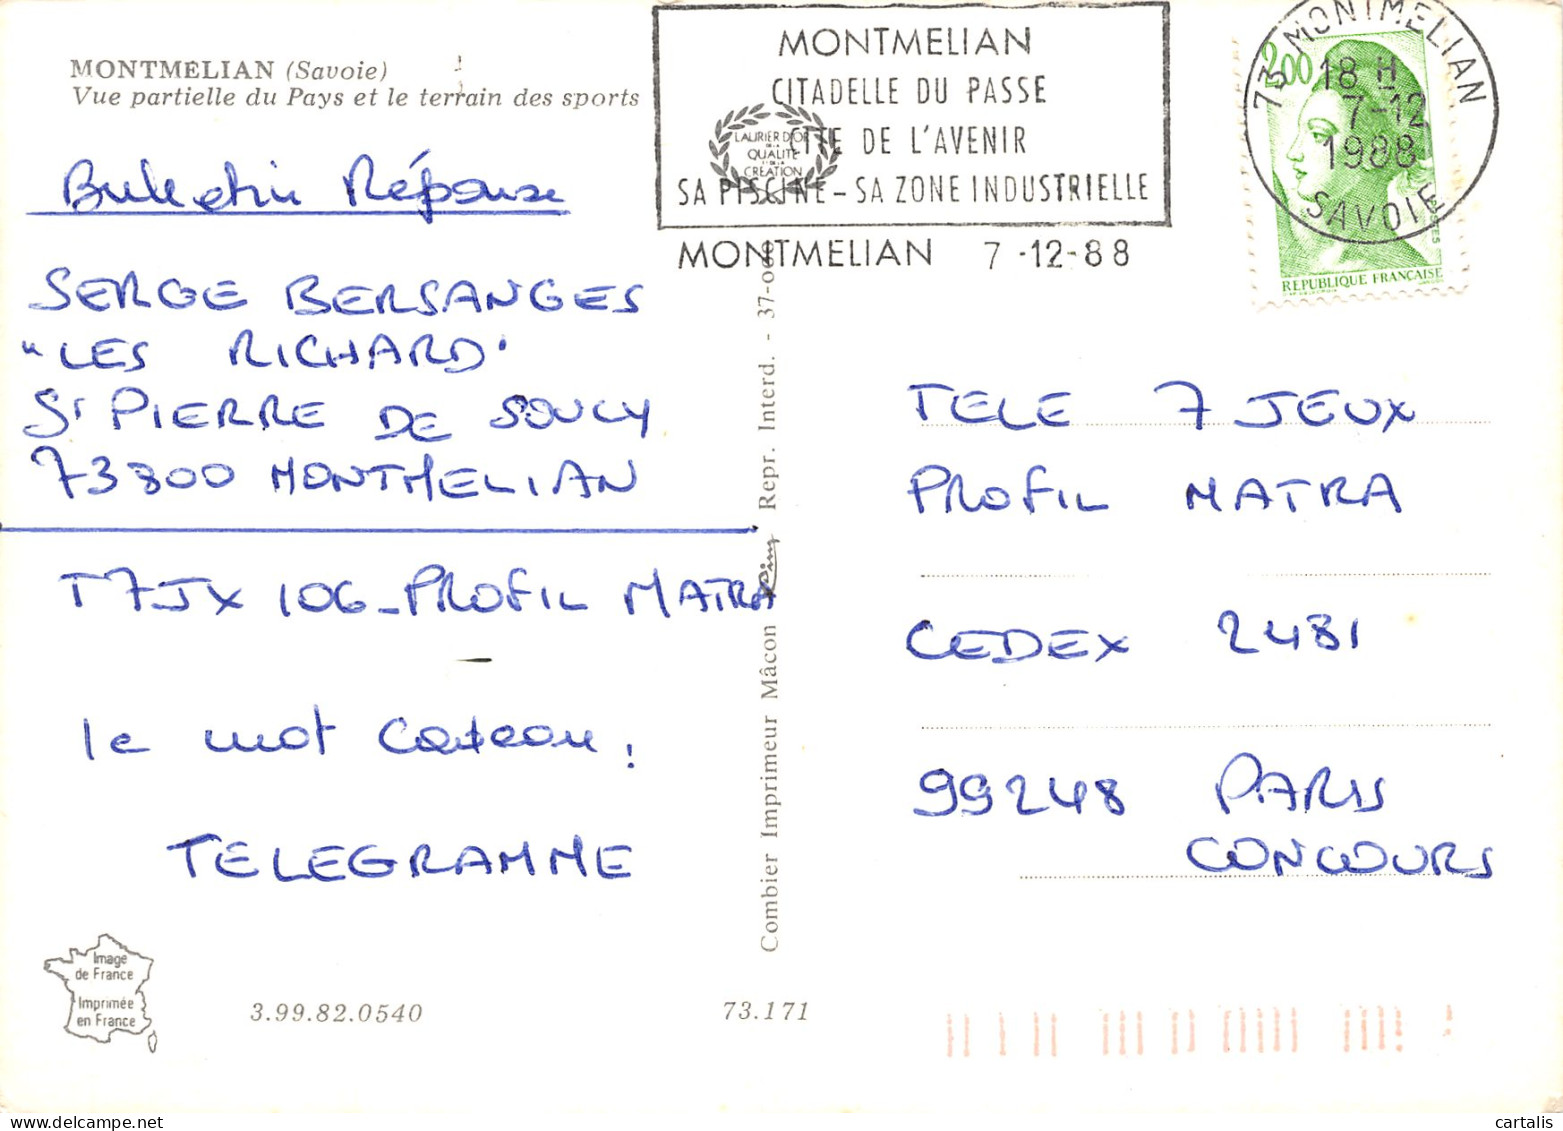 MONTMELIAN (Savoie)
Vue partielle du Pays et le terrain des sports
Bulletin Réponse
SERGE BERSANGES
"LES RICHARD"
St PIERRE DE SOUCY
73800 MONTMELIAN
T7JX 106 - PROFIL MATRA
le mot cadeau :
TELEGRAMME
Image
de France
Imprimée
en France
3.99.82.0540
73.171
Combier Imprimeur Mâcon Repr. Interd. - 37-
LAURIER D'OR
DE LA
QUALITÉ
ET DE LA
CRÉATION
MONTMELIAN
CITADELLE DU PASSE
CITE DE L'AVENIR
SA PISCINE - SA ZONE INDUSTRIELLE
MONTMELIAN 7-12-88
73 MONTMELIAN
18 H
7-12
1988
SAVOIE
2,00
POSTES
REPUBLIQUE FRANÇAISE
TELE 7 JEUX
PROFIL MATRA
CEDEX 2481
99248 PARIS
CONCOURS